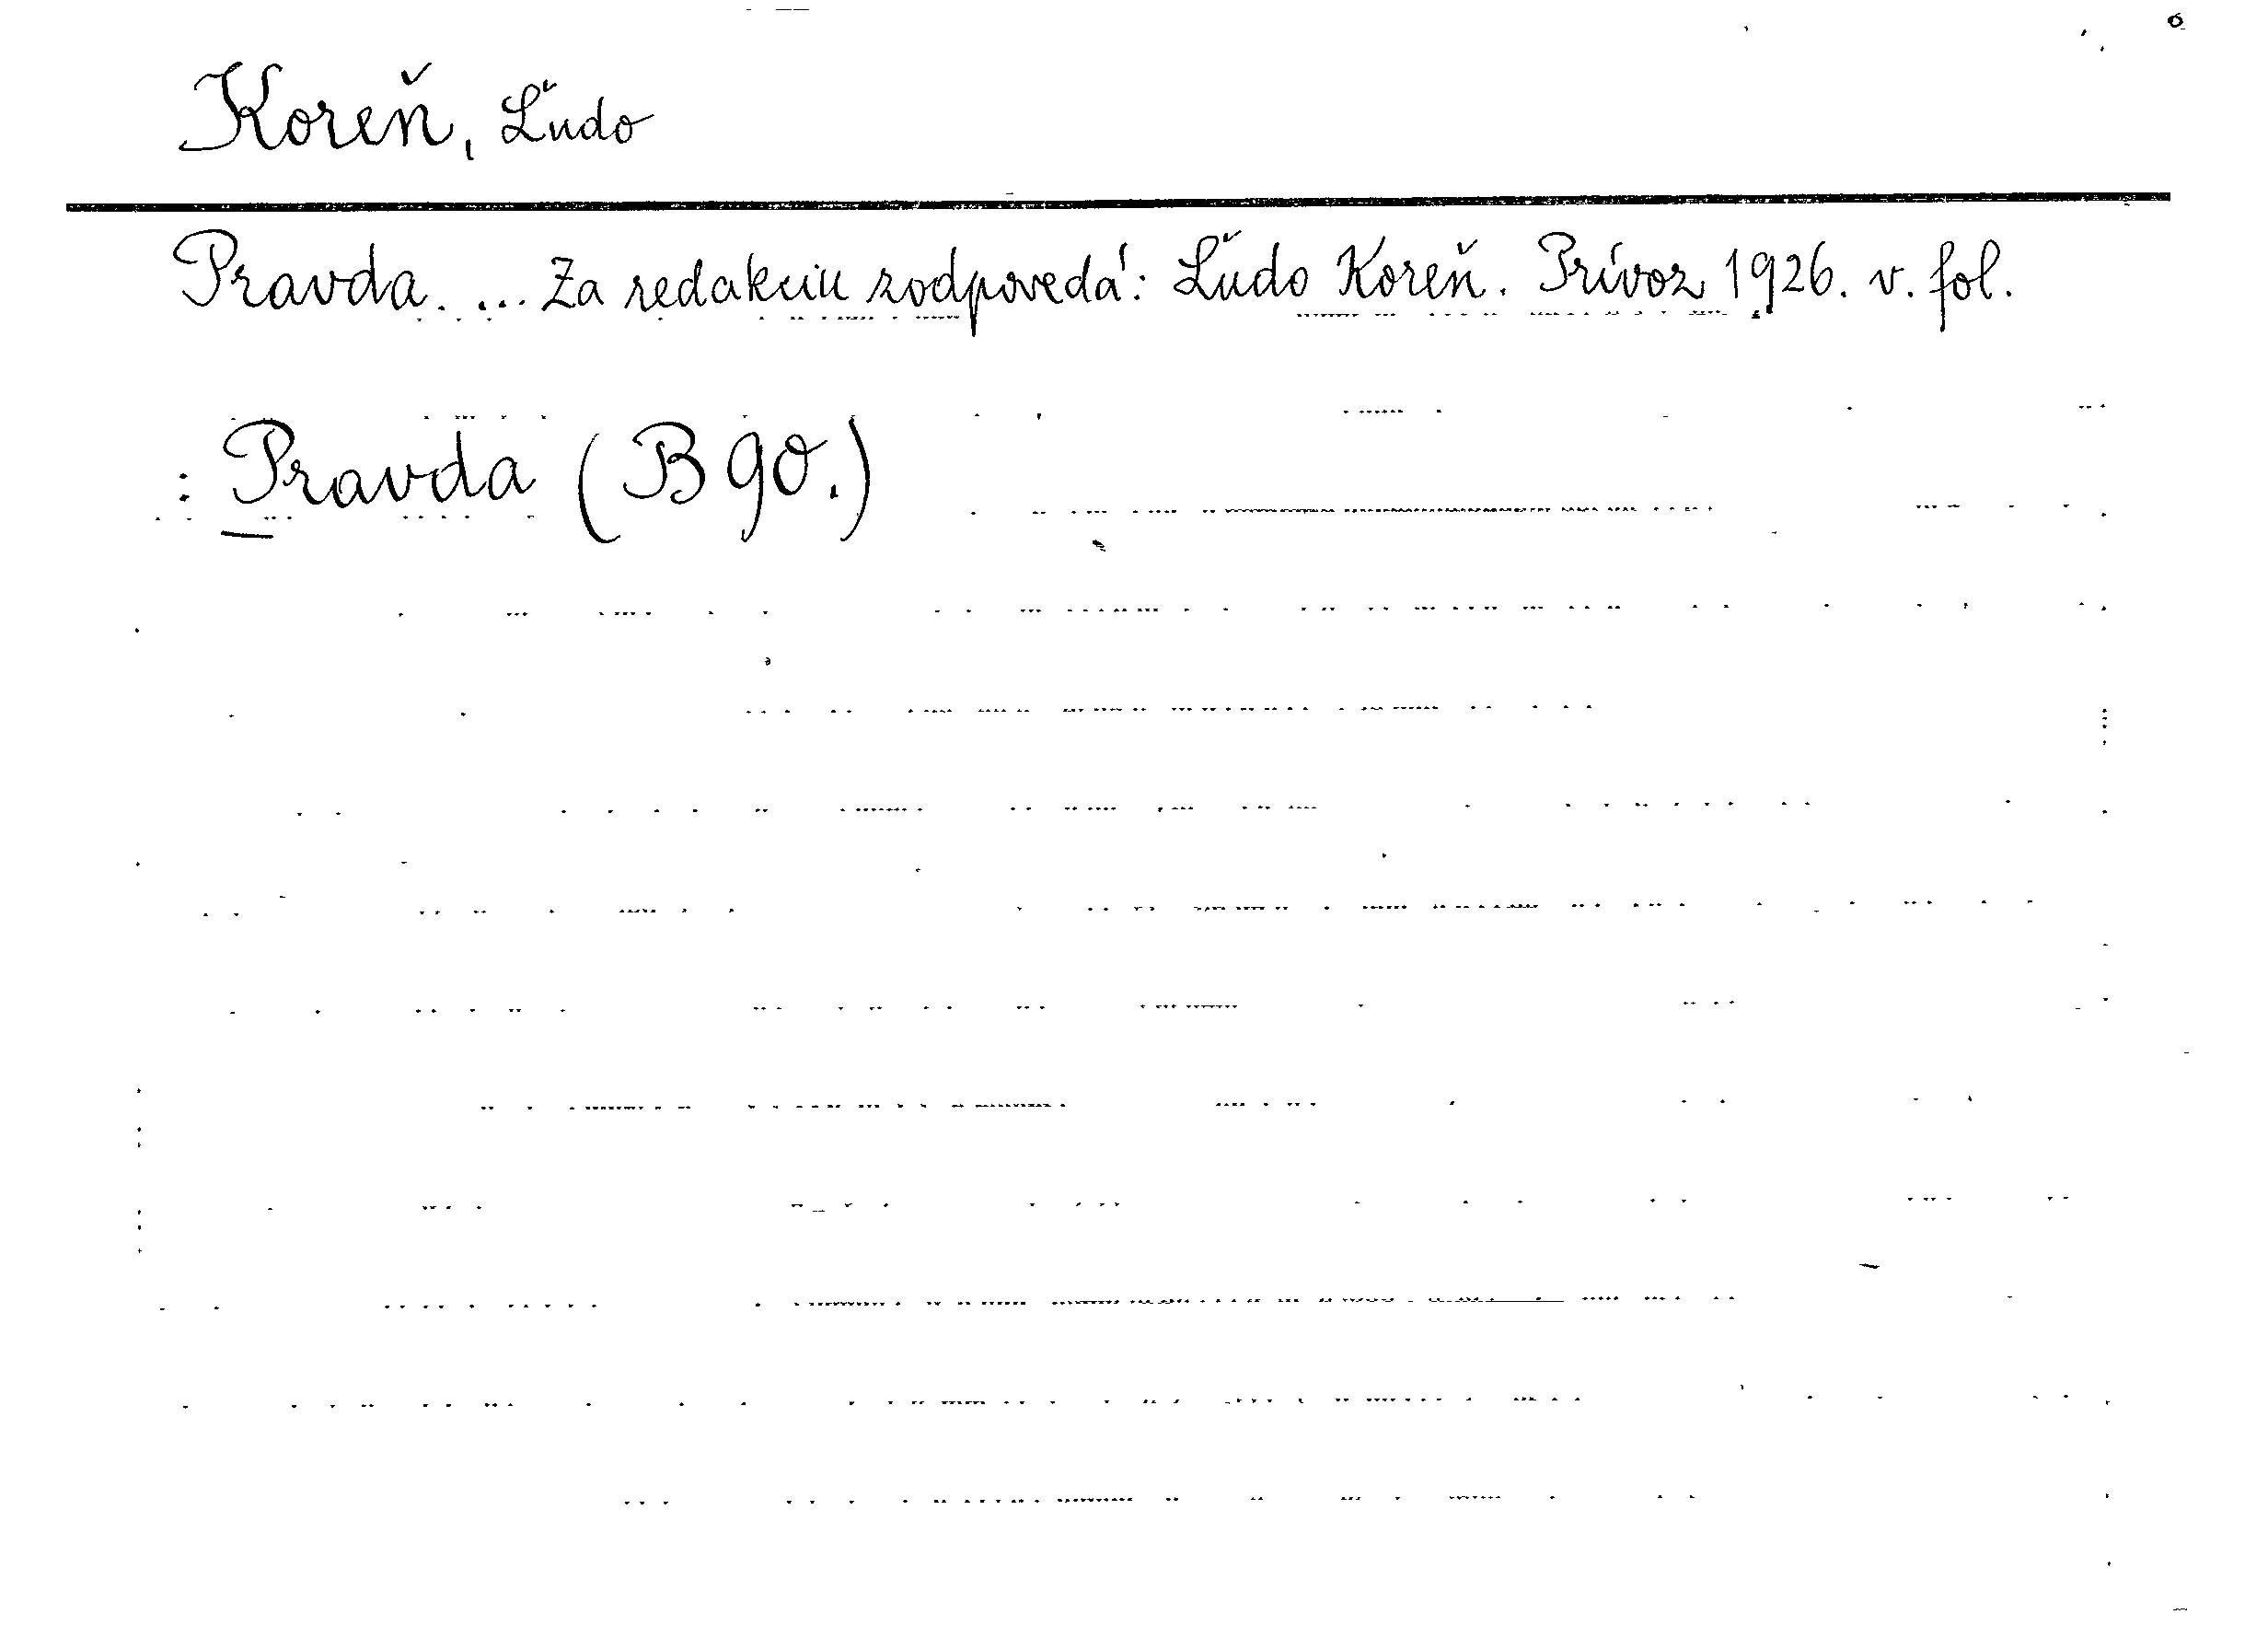 Koreň, Ľudo
Pravda. ... Za redakciu zodpovedá: Ľudo Koreň. Prívoz 1926. v. fol.
: Pravda (B 90.)